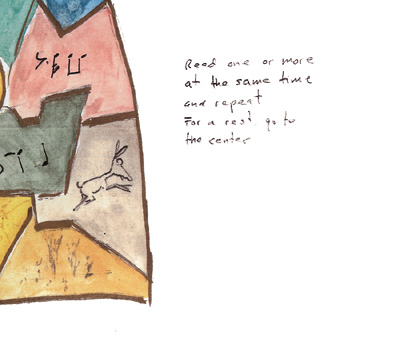 Read one or more
at the same time
and repeat
For a rest go to
the center